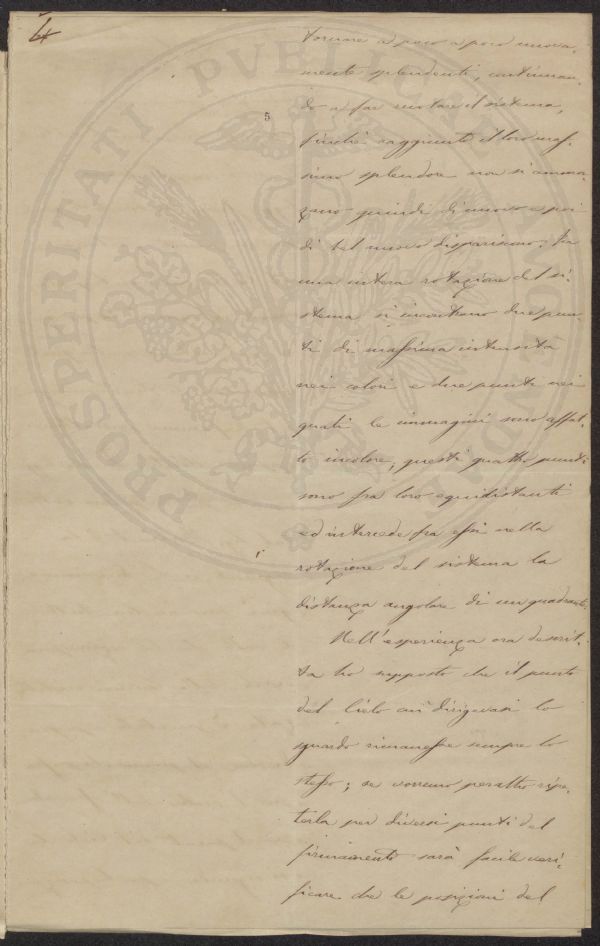 4
5
tornare a poco a poco nuova-
mente splendenti, continuan-
do a far ruotare il sistema,
finchè raggiunto il loro mas-
simo splendore non si ammor-
zano quindi di nuovo e poi
di bel nuovo dispariscono. In
una intera rotazione del si-
stema si incontrano due pun-
ti di massima intensità
nei colori e due punti nei
quali le immagini sono affat-
to incolore; questi quattro punti
sono fra loro equidistanti
ed intercede fra essi nella
rotazione del sistema la
distanza angolare di un quadrante.
Nell'esperienza ora descrit-
ta ho supposto che il punto
del Cielo cui dirigevasi lo
sguardo rimanesse sempre lo
stesso; se vorremo peraltro ripe-
terla per diversi punti del
firmamento sarà facile veri-
ficare che le posizioni del
PROSPERITATI PVBLICAE